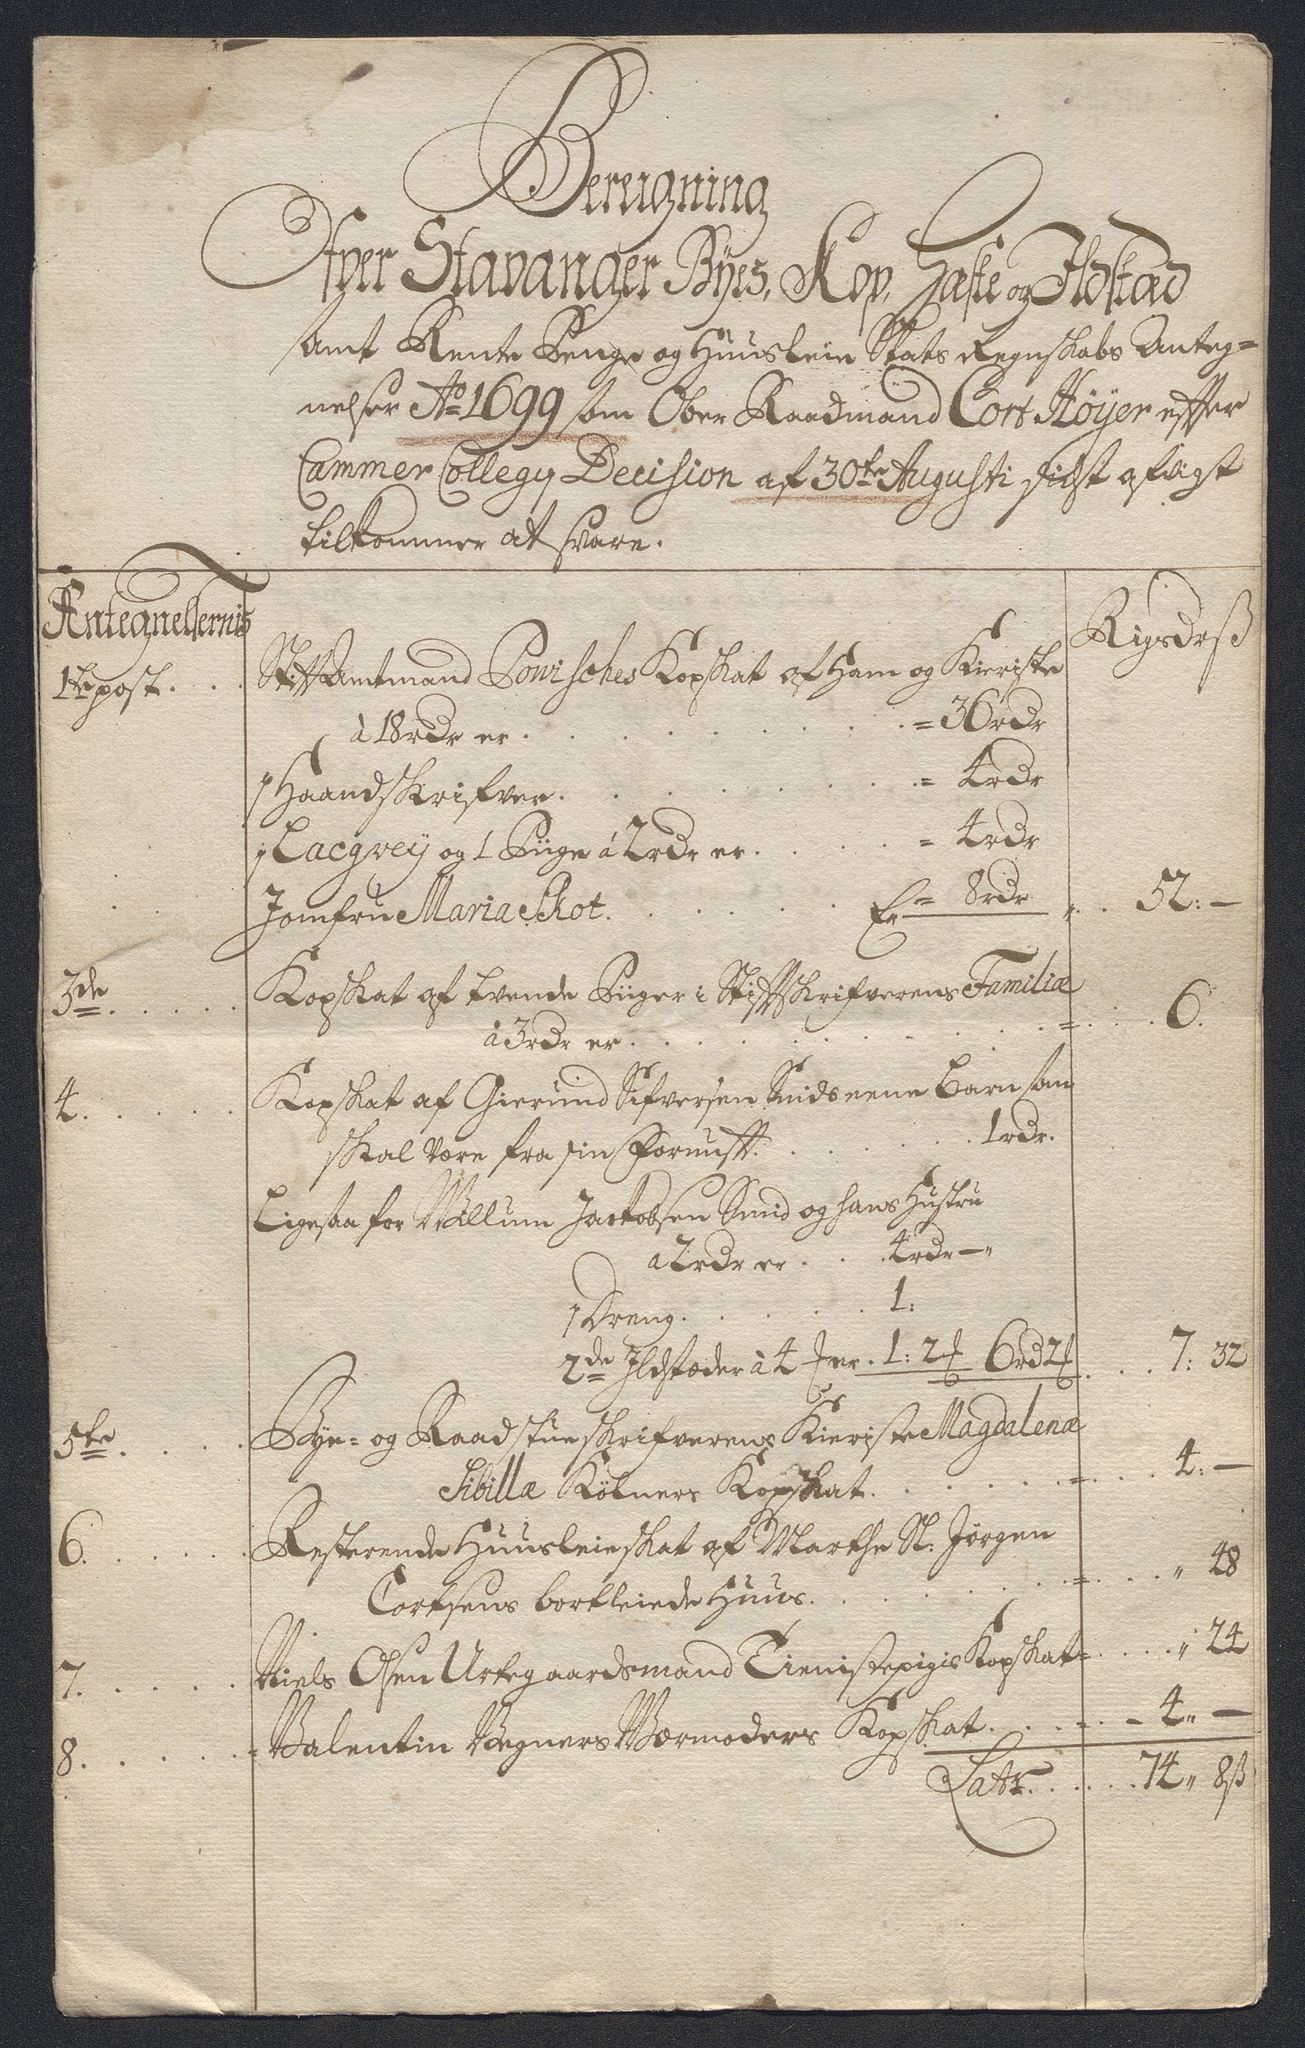 Bereigning
Ofver Stavanger Byes, Kop, Hæste og Ildstæd
samt Rente Penge og Huusleie Skats Regnskabs Anteg=
nelser Ao 1699 som Ober Raadmand Cort Høyer effter
Cammer Collegy Decision af 30te Augusti sidst afvigt
tilkommer at svare.
Antegnelsernis
Rigsdrß
1te post. . . Stifft Amtmand Powisches Kopskat af Ham og Kieriste
à 18 rdr er . . . = 36 rdr
1 Haandskrifver . . . = 4 rdr
1 Lacqvey og 1 Piige à 2 rdr er . . . = 4 rdr
Jomfru Maria Skot . . . Er = 8 rdr . . 52: —
3de . . . Kopskat af tvende Piiger i Stifftskrifverens Familiæ
à 3 rdr er . . . = . . . 6.
4. . . . Kopskat af Gierund Sifversen Smids eene Barn som
skal være fra sin Fornufft . . . 1 rdr.
Ligesaa for Willum Jackobsen Smid og hans Hustru
a 2 rdr er . . . 4 rdr — "
1 Dreng . . . 1:
2de Ildstæder à 4 er . 1: 2 6 rd 2 . . . 7: 32
5te . . . Bye= og Raadstueskrifverens Kieriste Magdalenæ
Sibillæ Kølners Kopskat . . . = . . . 4: —
6. . . . Resterende Huusleie skat af Marthe Sl. Jørgen
Cortsens bortleiede Huus . . . = . . . " 48
7. . . . Niels Olsen Urtegaardsmand Tienistepigis Kopskat = . . . " 24
8. . . . = Valentin Wegners Wærmoders Kopskat . . . — 4 " —
Latr. . . . 74 " 8 ß